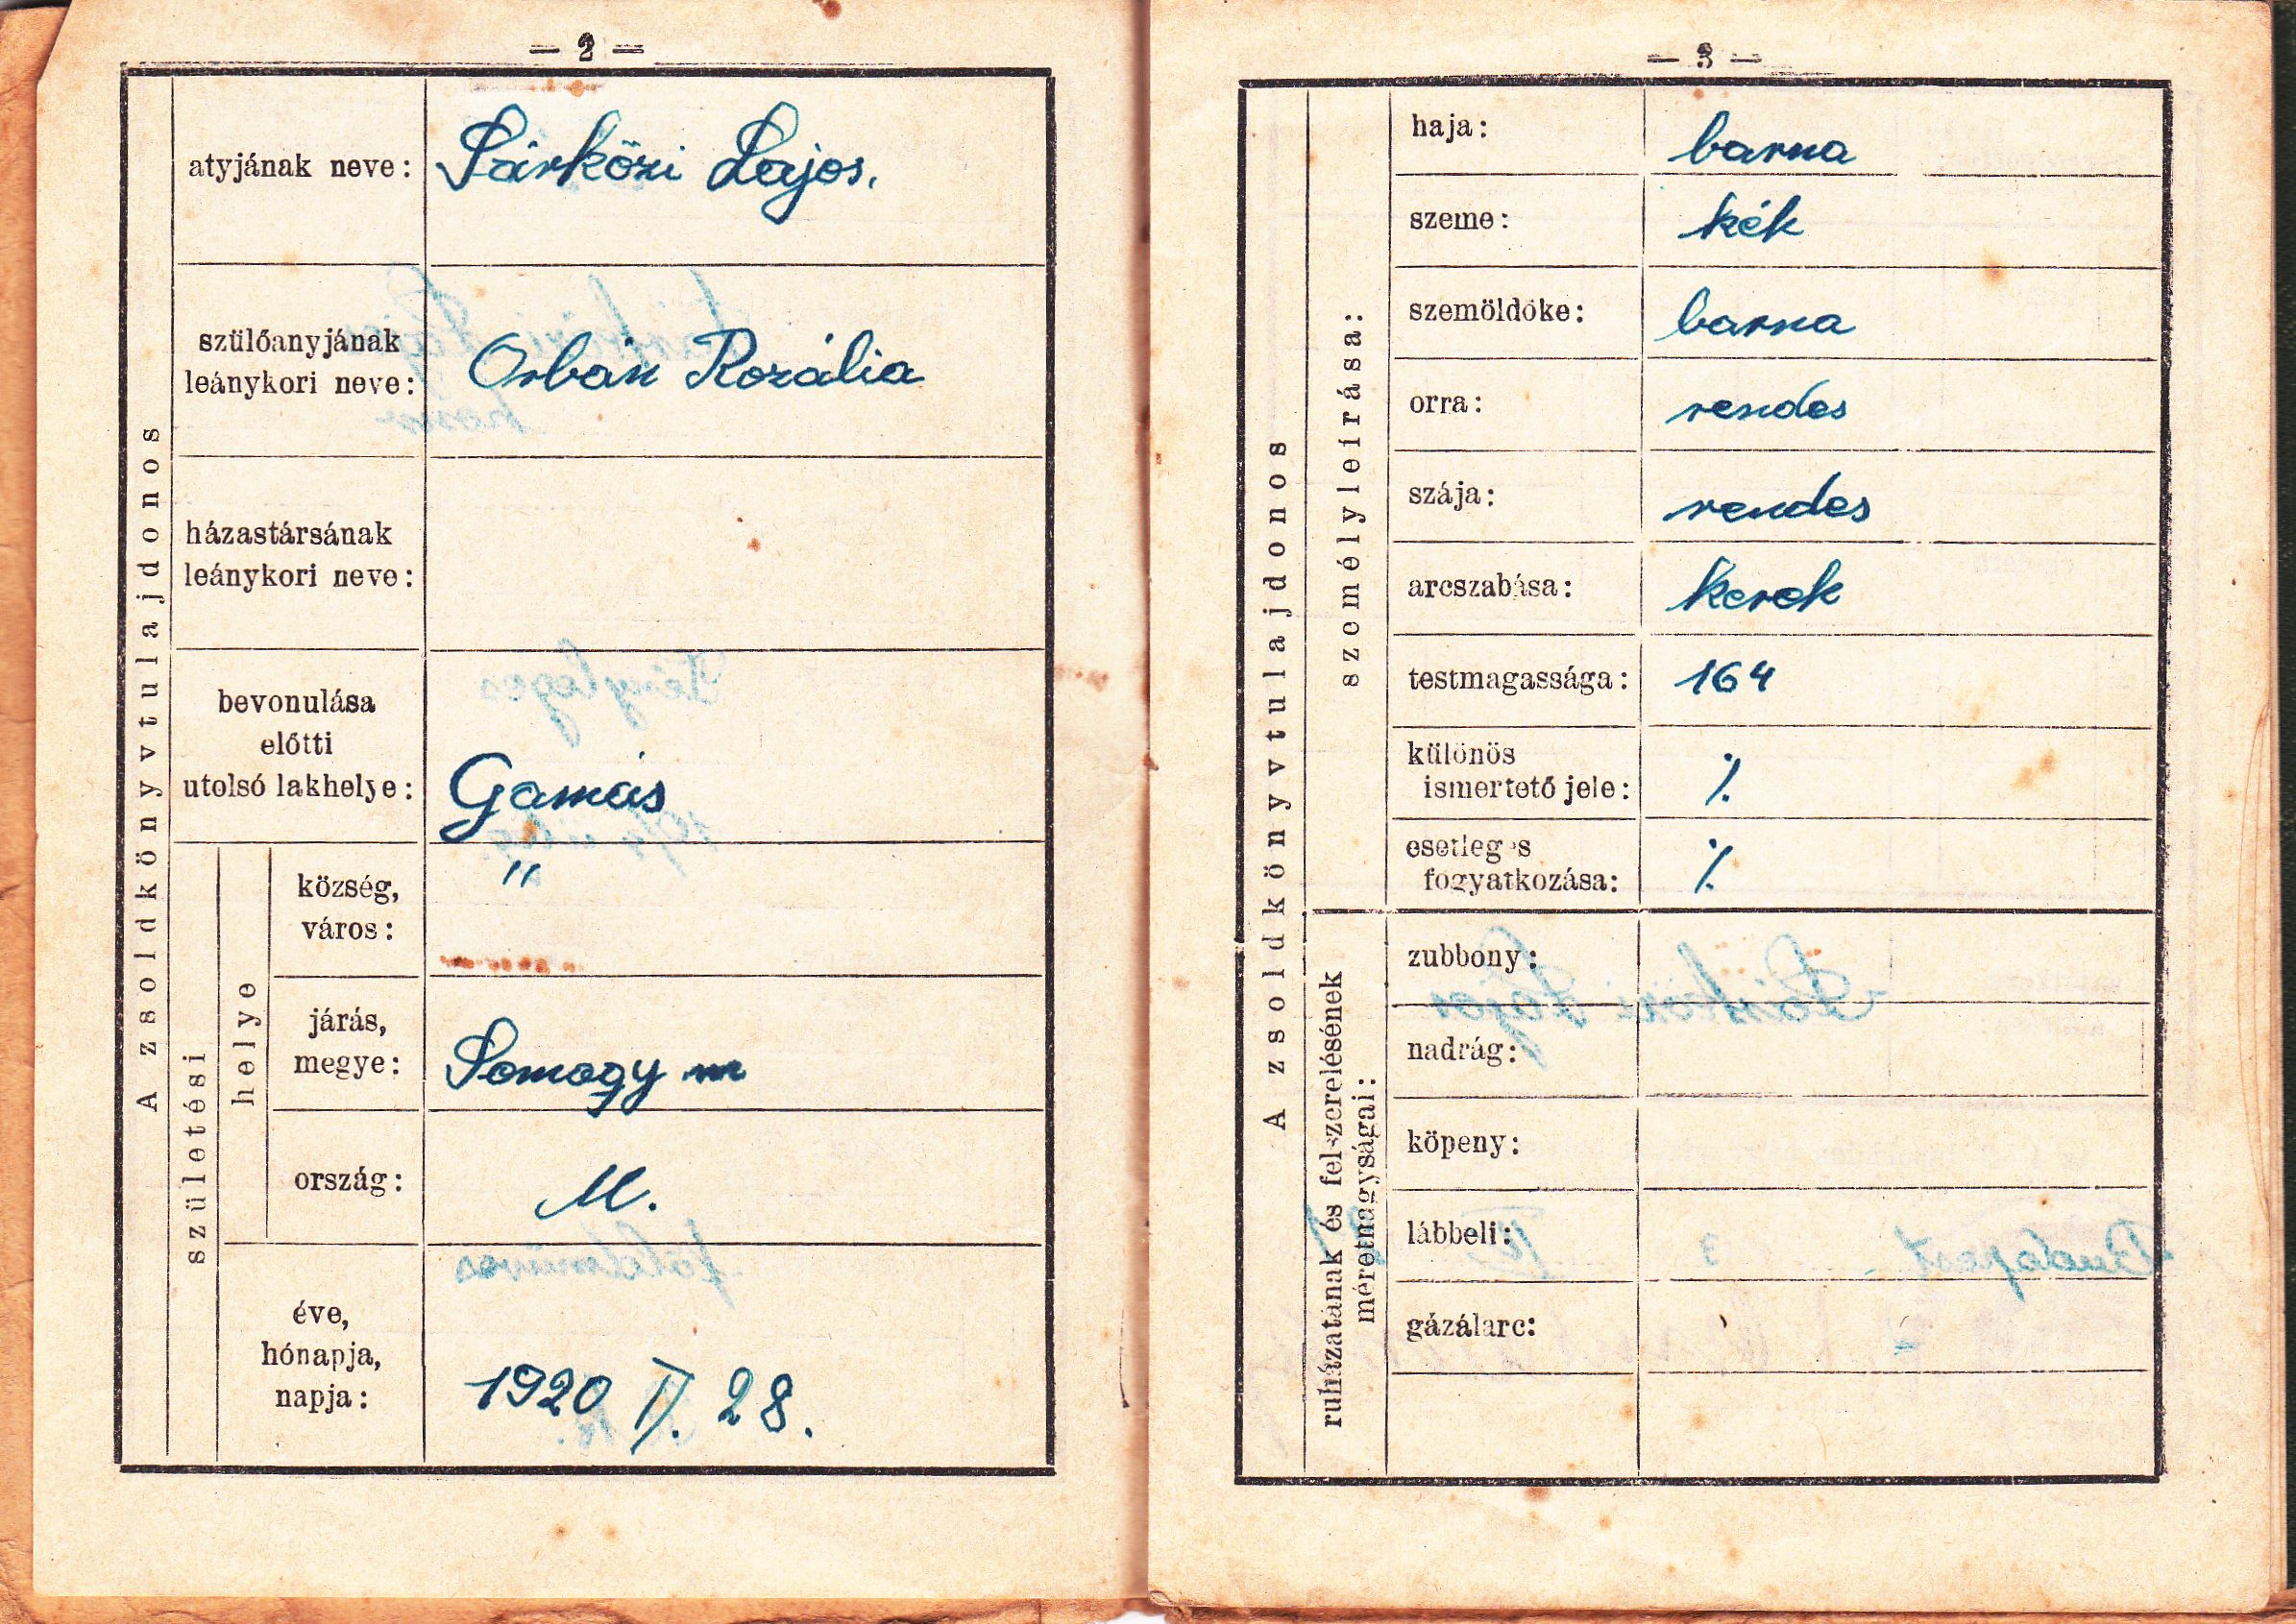 — 2 —
A zsoldkönyvtulajdonos
atyjának neve: Sárközi Lajos.
szülőanyjának
leánykori neve: Orbán Rozália
házastársának
leánykori neve:
bevonulása
előtti
utolsó lakhelye: Gamás
születési
helye
község, "
város:
járás,
megye: Somogy m
ország: M.
éve,
hónapja,
napja: 1920 II. 28.
— 3 —
A zsoldkönyvtulajdonos
személyleírása:
haja: barna
szeme: kék
szemöldöke: barna
orra: rendes
szája: rendes
arcszabása: kerek
testmagassága: 164
különös
ismertető jele: ·/.
esetleges
fogyatkozása: ·/.
ruházatának és felszerelésének
méretnagyságai:
zubbony:
nadrág:
köpeny:
lábbeli:
gázálarc: